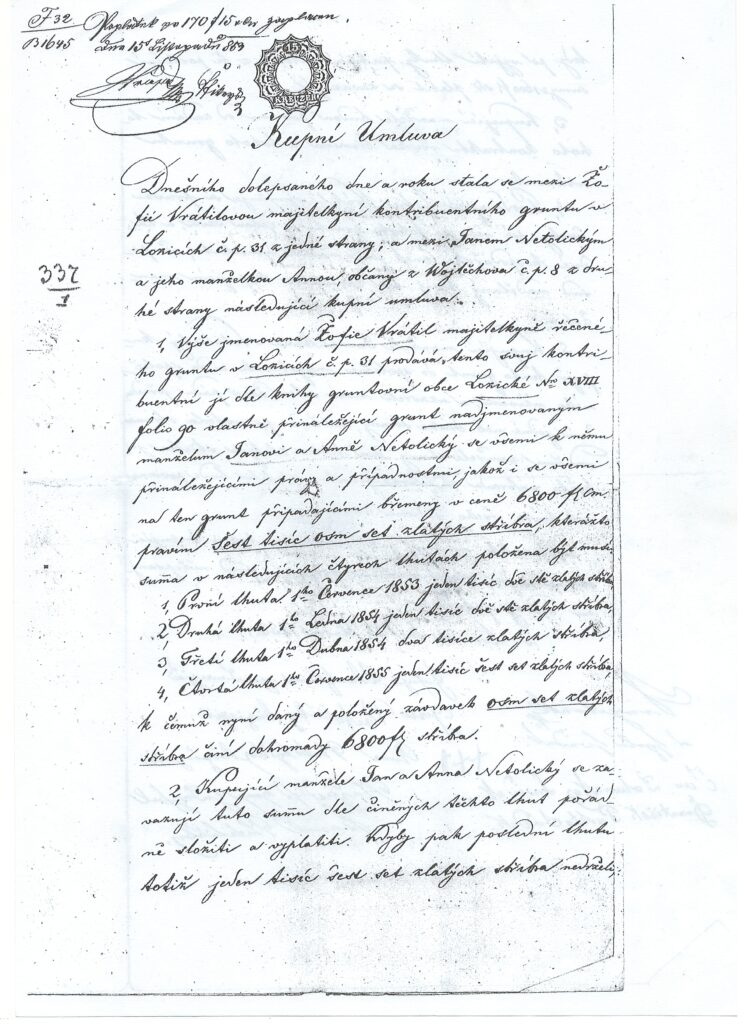 F 32.
B1645
Poplatek po 170 f 15 xbr zaplacen.
dne 15 Listopadu 853
15
Kupní Umluva
Dnešního dolepsaného dne a roku stala se mezi Žo-
fií Vrátilovou majitelkyní kontribuentního gruntu v
Lozicích č. p. 31 z jedné strany, a mezi Janem Netolickým
337
1
a jeho manželkou Annou, občany z Wojtěchova č. p. 8 z dru-
hé strany následující kupní umluva.
1, Výše jmenovaná Žofie Vrátil majitelkyně řečené-
ho gruntu v Lozicích č. p. 31 prodává, tento svůj kontri-
buentní jí dle knihy gruntovní obce Lozické Nro XVIII
folio 90 vlastně přináležející grunt nadjmenovaným
manželum Janovi a Anně Netolický se všemi k němu
přináležejícími právy a případnostmi jakož i se všemi
na ten grunt připadajícími břemeny v ceně 6800 f Cm.
pravím Šest tisíc osm set zlatých stříbra, kterážto
summa v následujících čtyrech lhutách položena být musí,
1, První lhuta 1ho Července 1853 jeden tisíc dvě stě zlatých stříbra
2, Druhá lhuta 1ho Ledna 1854 jeden tisíc dvě stě zlatých stříbra,
3, Třetí lhuta 1ho Dubna 1854 dva tisíce zlatých stříbra,
4, Čtvrtá lhuta 1ho Července 1855 jeden tisíc šest set zlatých stříbra,
k čemuž nyní daný a položený závdavek osm set zlatých
stříbra činí dohromady 6800 f stříbra.
2, Kupující manželé Jan a Anna Netolický se za-
vazují tuto summu dle činěných těchto lhut pořád-
ně složiti a vyplatiti. Kdyby pak poslední lhutu
totiž jeden tisíc šest set zlatých stříbra nedrželi,